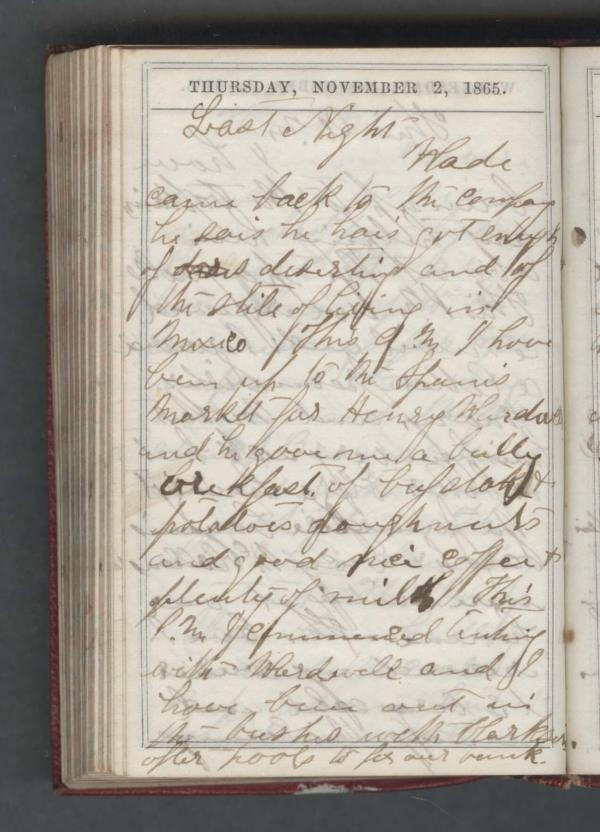 THURSDAY, NOVEMBER 2, 1865.
Last Night
Wade
came back to the company
he sais he hais got enugh
of deserting and of
the stile of living in
Mexico This A M I have
been up to the Spanis
Markit for Henry
and he gave me a bully
brekfast of &
potatois doughnuts
and good nice coffee &
plenty of milk This
P.M I commenced tinting
with Werdwell and I
have been out in
the bushes with
after pools to fix our bunk.